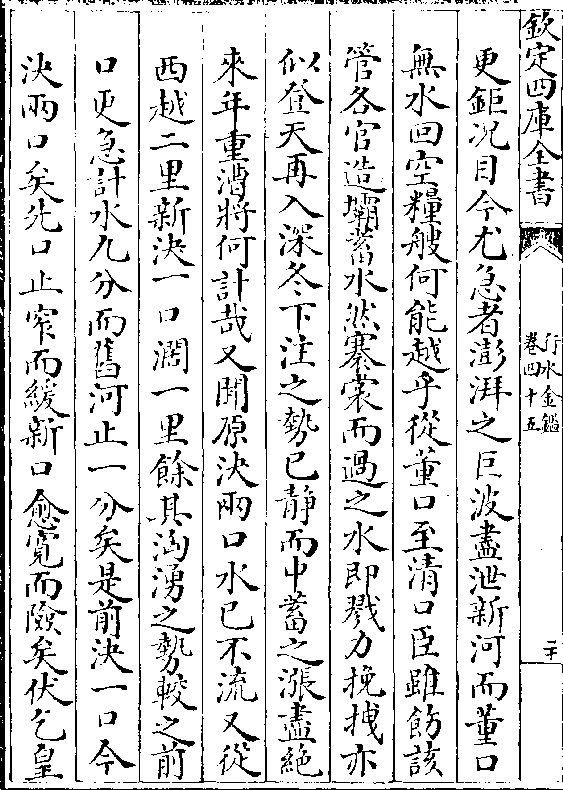 欽定四庫全書
行水金鑑
卷四十五
二十
更鉅況目今尤急者澎湃之巨波盡泄新河而董口
無水回空糧艘何能越乎從董口至清口臣雖飭該
管各官造壩蓄水然褰裳而過之水即戮力挽拽亦
似登天再入深冬下注之勢已靜而中蓄之漲盡絕
來年重漕將何計哉又聞原決兩口水已不流又從
西越二里新決一口濶一里餘其洶湧之勢較之前
口更急計水九分而舊河止一分矣是前決一口今
決兩口矣先口止窄而緩新口愈寬而險矣伏乞皇